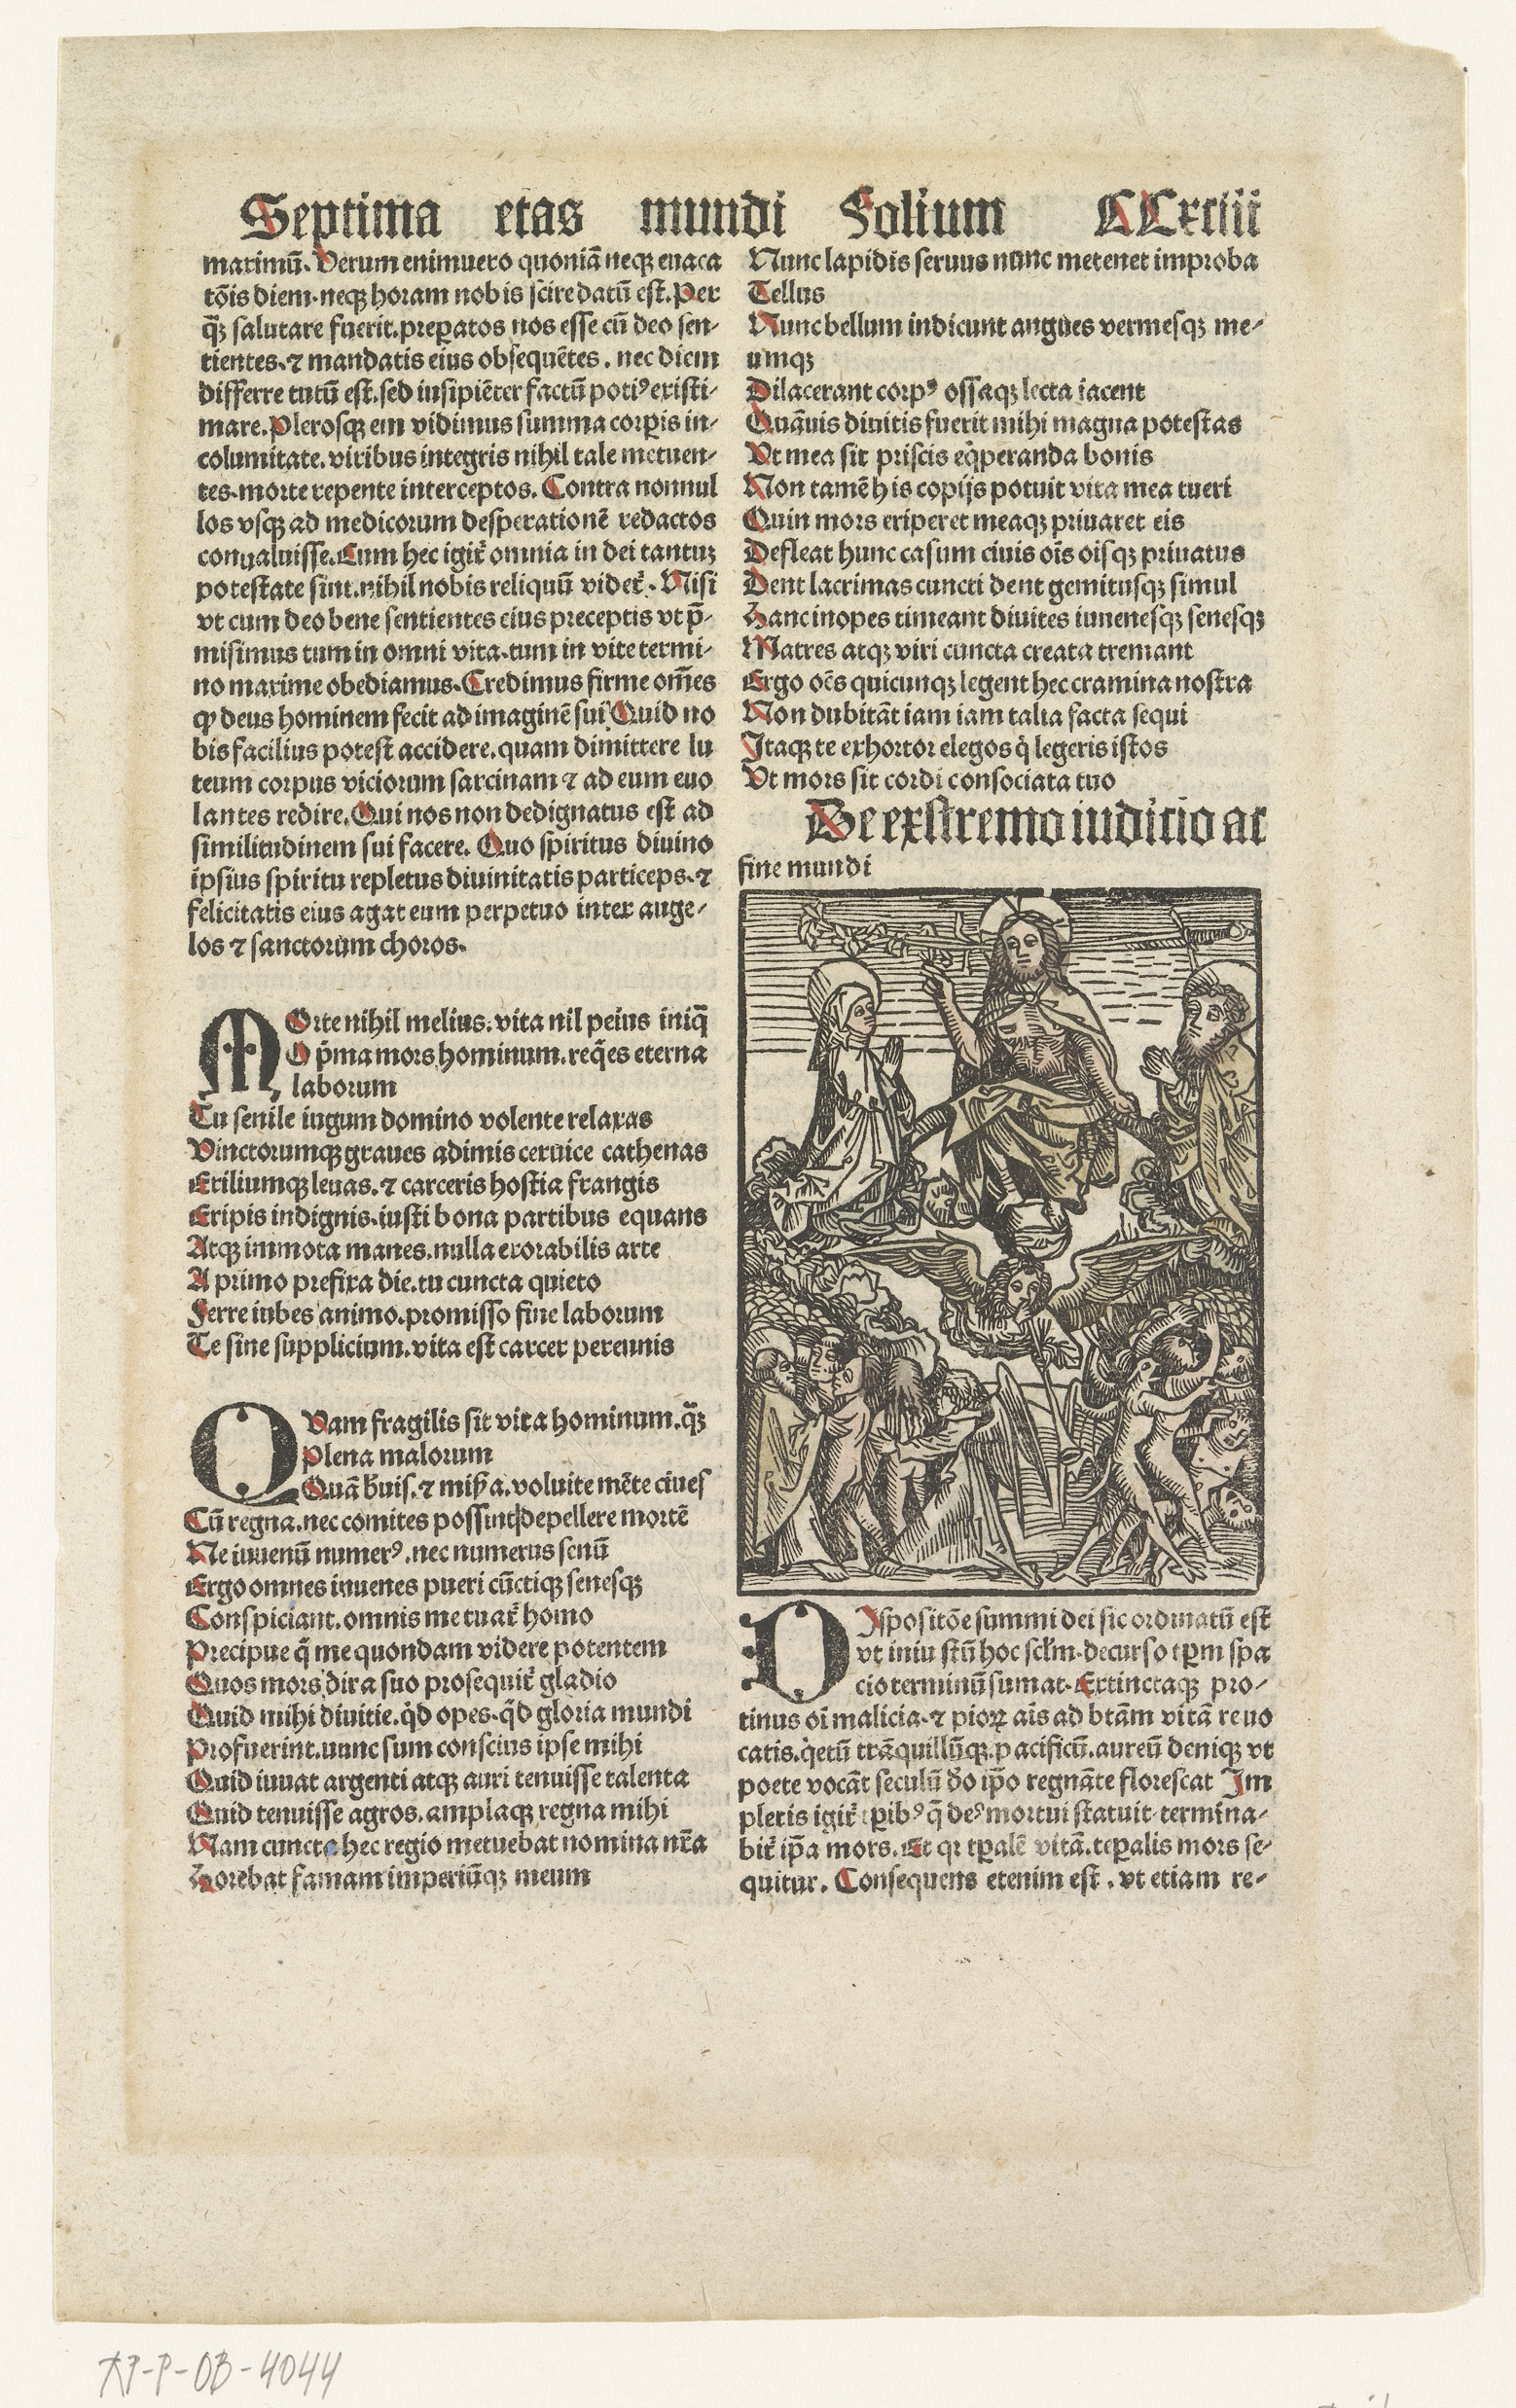 Septima etas mundi Folium CCxciii
maximū. Verum enimuero quoniā neqꝫ euaca
tōis diem. neqꝫ horam nobis scire datū est. Per
q̄ꝫ salutare fuerit. preꝑatos nos esse cū deo sen-
tientes. ⁊ mandatis eius obsequētes. nec diem
differre tutū est. sed insipiēter factū potiꝰ existi-
mare. Plerosqꝫ em vidimus summa corꝑis in-
columitate. viribus integris nihil tale metuen-
tes. morte repente interceptos. Contra nonnul
los vsqꝫ ad medicorum desperationē redactos
conualuisse. Cum hec igit᷑ omnia in dei tantuꝫ
potestate sint. nihil nobis reliquū videt᷑. Nisi
vt cum deo bene sentientes eius preceptis vt p̄-
misimus tum in omni vita. tum in vite termi-
no maxime obediamus. Credimus firme om̄es
ꝙ deus hominem fecit ad imaginē sui Quid no
bis facilius potest accidere. quam dimittere lu
teum corpus viciorum sarcinam ⁊ ad eum euo
lantes redire. Qui nos non dedignatus est ad
similitudinem sui facere. Quo spiritus diuino
ipsius spiritu repletus diuinitatis particeps. ⁊
felicitatis eius agat eum perpetuo inter ange-
los ⁊ sanctorum choros.
MOrte nihil melius. vita nil peius iniq̄
O p̄ma mors hominum. req̄es eterna
laborum
Tu senile iugum domino volente relaxas
Vinctorumqꝫ graues adimis ceruice cathenas
Exiliumqꝫ leuas. ⁊ carceris hostia frangis
Eripis indignis. iusti bona partibus equans
Atqꝫ immota manes. nulla exorabilis arte
A primo prefixa die. tu cuncta quieto
Ferre iubes animo. promisso fine laborum
Te sine supplicium. vita est carcer perennis
QVam fragilis sit vita hominum. q̄ꝫ
Plena malorum
Quā b̄uis. ⁊ miẜa. voluite mēte ciues
Cū regna. nec comites possint depellere mortē
Ne iuuenū numerꝰ. nec numerus senū
Ergo omnes iuuenes pueri cūctiqꝫ senesqꝫ
Conspiciant. omnis metuat᷑ homo
Precipue q̄ me quondam videre potentem
Quos mors dira suo prosequit᷑ gladio
Quid mihi diuitie. qd̄ opes. qd̄ gloria mundi
Profuerint. nunc sum conscius ipse mihi
Quid iuuat argenti atqꝫ auri tenuisse talenta
Quid tenuisse agros. amplaqꝫ regna mihi
Nam cuncta hec regio metuebat nomina nr̄a
Horebat famam imperiūqꝫ meum
Nunc lapidis seruus nunc metenet improba
Tellus
Nunc bellum indicunt angues vermesqꝫ me-
umqꝫ
Dilacerant corpꝰ ossaqꝫ lecta iacent
Quāuis diuitis fuerit mihi magna potestas
Vt mea sit priscis eq̇peranda bonis
Non tamē his copijs potuit vita mea tueri
Quin mors eriperet meaqꝫ priuaret eis
Defleat hunc casum ciuis oīs oisqꝫ priuatus
Dent lacrimas cuncti dent gemitusqꝫ simul
Hanc inopes timeant diuites iuuenesqꝫ senesqꝫ
Matres atqꝫ viri cuncta creata tremant
Ergo oēs quicunqꝫ legent hec cramina nostra
Non dubitāt iam iam talia facta sequi
Itaqꝫ te exhortor elegos q̇ legeris istos
Vt mors sit cordi consociata tuo
De exstremo iuditio ac
fine mundi
DIspositōe summi dei sic ordinatū est
vt iniustū hoc scl̄m. decurso tꝑm spa
cio terminū sumat. Extinctaqꝫ pro-
tinus oī malicia. ⁊ pioꝝ aīs ad btām vitā reuo
catis. q̇etū trāquillūqꝫ. pacificū. aureū deniqꝫ vt
poete vocāt seculū d̄o ip̄o regnāte florescat Im
pletis igit᷑ tꝑibꝰ q̄ deꝰ mortui statuit. termina-
bit᷑ ip̄a mors. Et qr tꝑalē vitā. teꝑalis mors se-
quitur. Consequens etenim est. vt etiam re-
RP-P-OB-4044